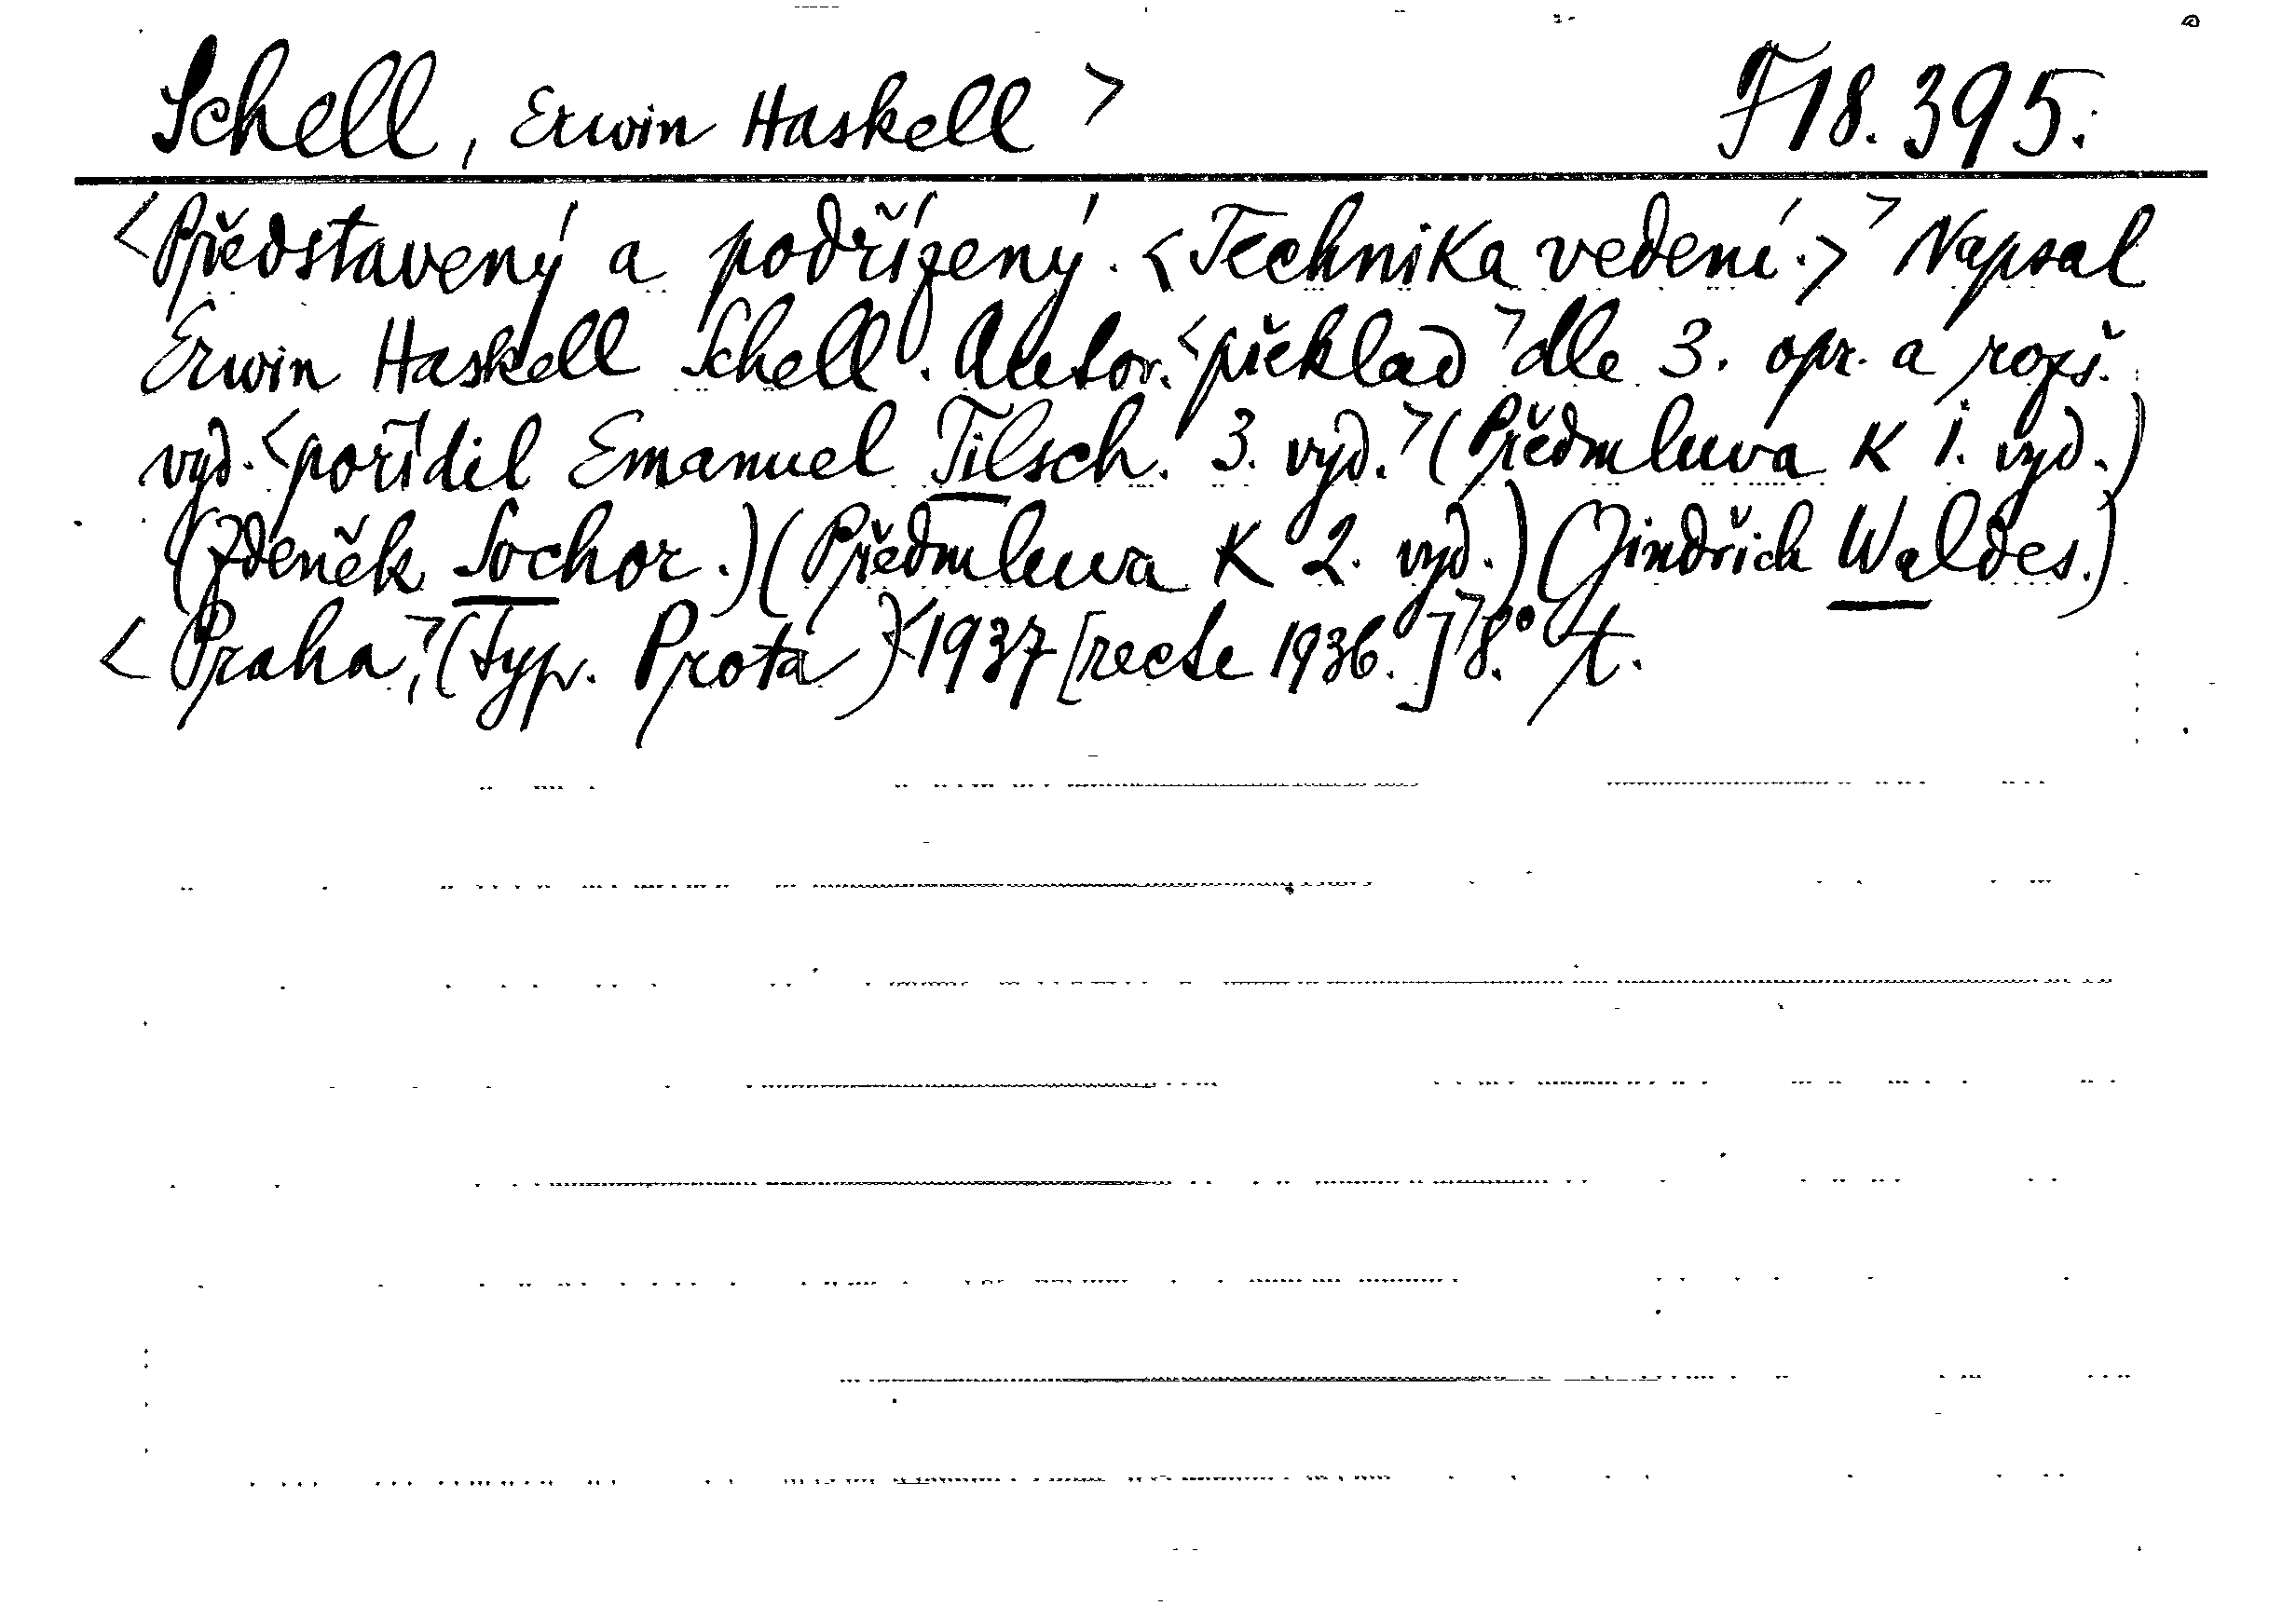 Schell, Erwin Haskell > F 18.395.
<Představený a podřízený. <Technika vedení.>> Napsal
Erwin Haskell Schell. Autor. <překlad> dle 3. opr. a rozš.
vyd. <pořídil Emanuel Tilsch. 3. vyd.> (Předmluva K 1. vyd.)
(Zdeněk Sochor.) (Předmluva K 2. vyd.) (Jindřich Waldes.)
<Praha,> (Typ. Prota) <1937 [recte 1936.]> 8.° t.